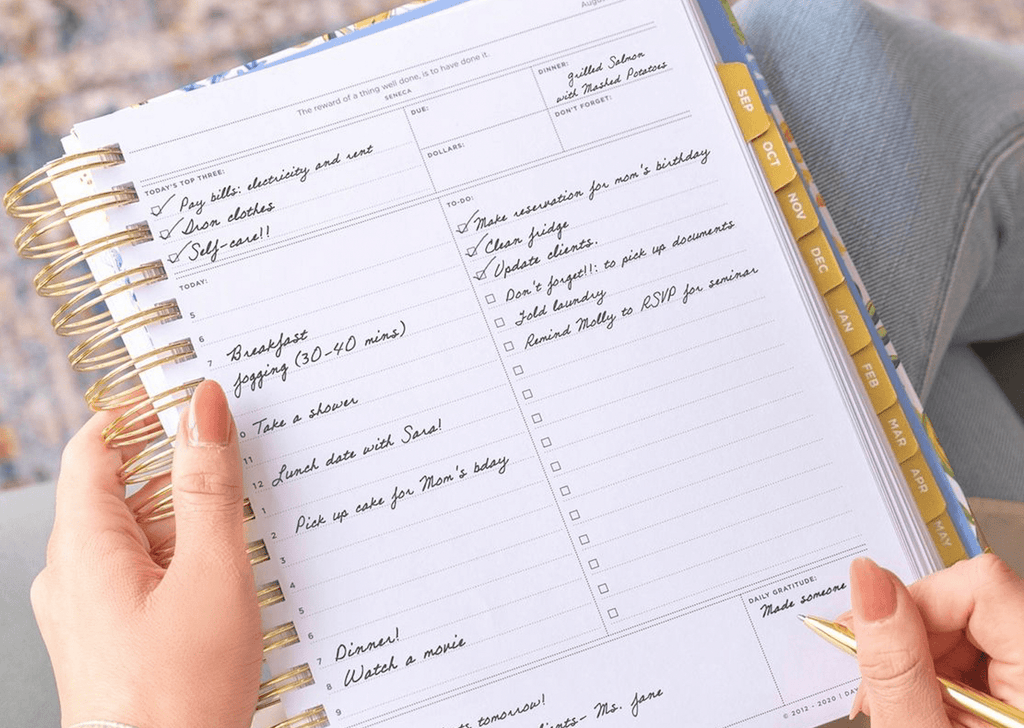 August
The reward of a thing well done, is to have done it.
SENECA
TODAY'S TOP THREE:
Pay bills: electricity and rent
Iron clothes
Self-care!!
DUE:
DOLLARS:
DINNER:
grilled Salmon
with Mashed Potatoes
DON'T FORGET:
TODAY:
5
6
7 Breakfast
jogging (30-40 mins)
0 Take a shower
11
12 Lunch date with Sara!
1
2 Pick up cake for Mom's bday
3
4
5
6
7 Dinner!
8 Watch a movie
9
TO-DO:
Make reservation for mom's birthday
Clean fridge
Update clients.
Don't forget!!: to pick up documents
Fold laundry
Remind Molly to RSVP for seminar
tomorrow!
Ms. Jane
DAILY GRATITUDE:
Made someone
© 2012 - 2020 | DAY
SEP
OCT
NOV
DEC
JAN
FEB
MAR
APR
MAY